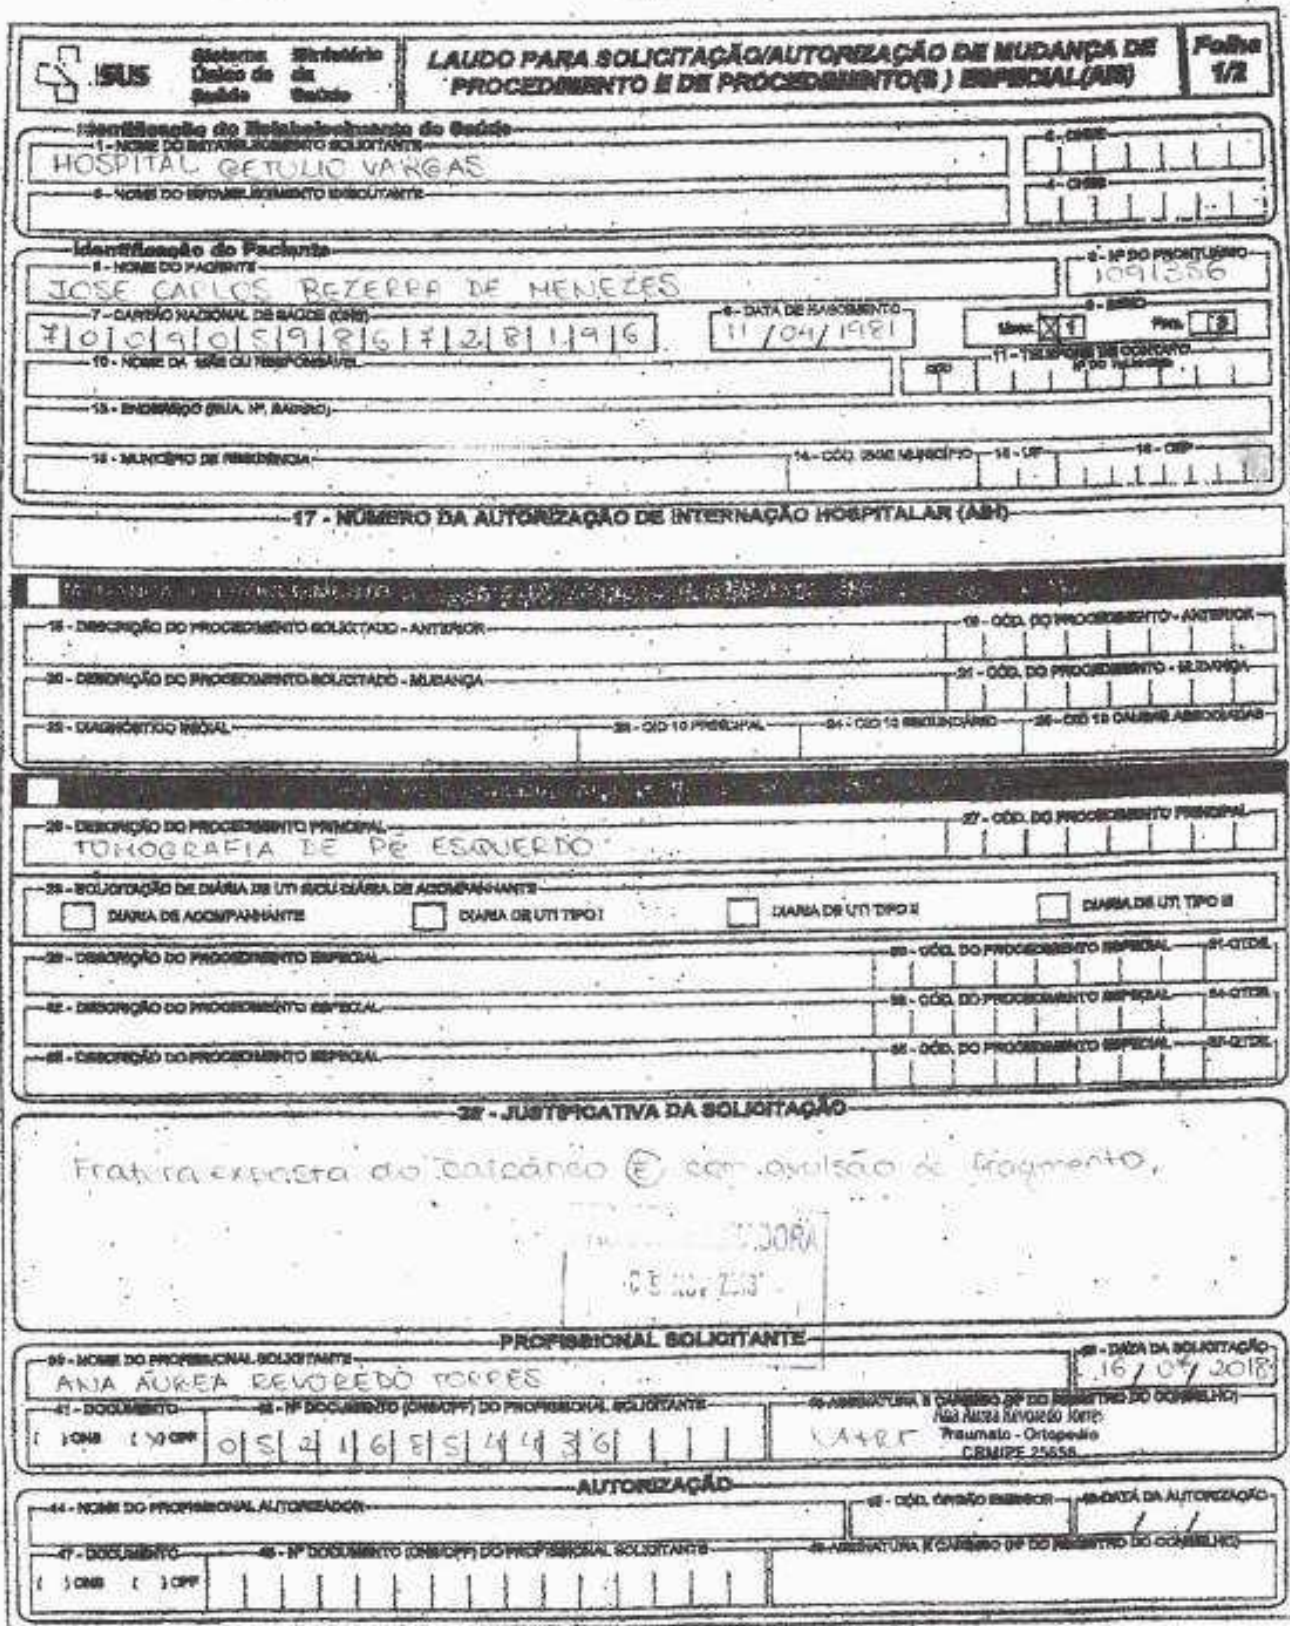 SUS
Sistema Único de Saúde
Ministério da Saúde
LAUDO PARA SOLICITAÇÃO/AUTORIZAÇÃO DE MUDANÇA DE PROCEDIMENTO E DE PROCEDIMENTO(S) ESPECIAL(AIS)
Folha 1/2
Identificação do Estabelecimento de Saúde
1 - NOME DO ESTABELECIMENTO SOLICITANTE
2 - CNES
HOSPITAL GETULIO VARGAS
3 - NOME DO ESTABELECIMENTO EXECUTANTE
4 - CNES
Identificação do Paciente
5 - NOME DO PACIENTE
6 - Nº DO PRONTUÁRIO
JOSE CARLOS BEZERRA DE MENEZES
1091356
7 - CARTÃO NACIONAL DE SAÚDE (CNS)
8 - DATA DE NASCIMENTO
9 - SEXO
700905986728196
11/04/1981
Masc. X 1
Fem. 3
10 - NOME DA MÃE OU RESPONSÁVEL
11 - TELEFONE DE CONTATO
DDD
Nº DO TELEFONE
12 - ENDEREÇO (RUA, Nº, BAIRRO)
13 - MUNICÍPIO DE RESIDÊNCIA
14 - CÓD. IBGE MUNICÍPIO
15 - UF
16 - CEP
17 - NÚMERO DA AUTORIZAÇÃO DE INTERNAÇÃO HOSPITALAR (AIH)
18 - DESCRIÇÃO DO PROCEDIMENTO SOLICITADO - ANTERIOR
19 - CÓD. DO PROCEDIMENTO - ANTERIOR
20 - DESCRIÇÃO DO PROCEDIMENTO SOLICITADO - MUDANÇA
21 - CÓD. DO PROCEDIMENTO - MUDANÇA
22 - DIAGNÓSTICO INICIAL
23 - CID 10 PRINCIPAL
24 - CID 10 SECUNDÁRIO
25 - CID 10 CAUSAS ASSOCIADAS
26 - DESCRIÇÃO DO PROCEDIMENTO PRINCIPAL
27 - CÓD. DO PROCEDIMENTO PRINCIPAL
TOMOGRAFIA DE PÉ ESQUERDO
28 - SOLICITAÇÃO DE DIÁRIA DE UTI E/OU DIÁRIA DE ACOMPANHANTE
DIARIA DE ACOMPANHANTE
DIARIA DE UTI TIPO I
DIARIA DE UTI TIPO II
DIARIA DE UTI TIPO III
29 - DESCRIÇÃO DO PROCEDIMENTO ESPECIAL
30 - CÓD. DO PROCEDIMENTO ESPECIAL
31-QTDE.
32 - DESCRIÇÃO DO PROCEDIMENTO ESPECIAL
33 - CÓD. DO PROCEDIMENTO ESPECIAL
34-QTDE.
35 - DESCRIÇÃO DO PROCEDIMENTO ESPECIAL
36 - CÓD. DO PROCEDIMENTO ESPECIAL
37-QTDE.
38 - JUSTIFICATIVA DA SOLICITAÇÃO
Fratura exposta do calcâneo (E) com avulsão de fragmento,
PROFISSIONAL SOLICITANTE
39 - NOME DO PROFISSIONAL SOLICITANTE
40 - DATA DA SOLICITAÇÃO
ANA ÁUREA REVOREDO TORRES
16/07/2018
41 - DOCUMENTO
42 - Nº DOCUMENTO (CNS/CPF) DO PROFISSIONAL SOLICITANTE
43-ASSINATURA E CARIMBO (Nº DO REGISTRO DO CONSELHO)
( ) CNS (X) CPF
05216854436
Ana Aurea Revoredo Torres
Traumato - Ortopedia
CRM/PE 25656
AUTORIZAÇÃO
44 - NOME DO PROFISSIONAL AUTORIZADOR
45 - CÓD. ÓRGÃO EMISSOR
46-DATA DA AUTORIZAÇÃO
/ /
47 - DOCUMENTO
48 - Nº DOCUMENTO (CNS/CPF) DO PROFISSIONAL SOLICITANTE
49-ASSINATURA E CARIMBO (Nº DO REGISTRO DO CONSELHO)
( ) CNS ( ) CPF